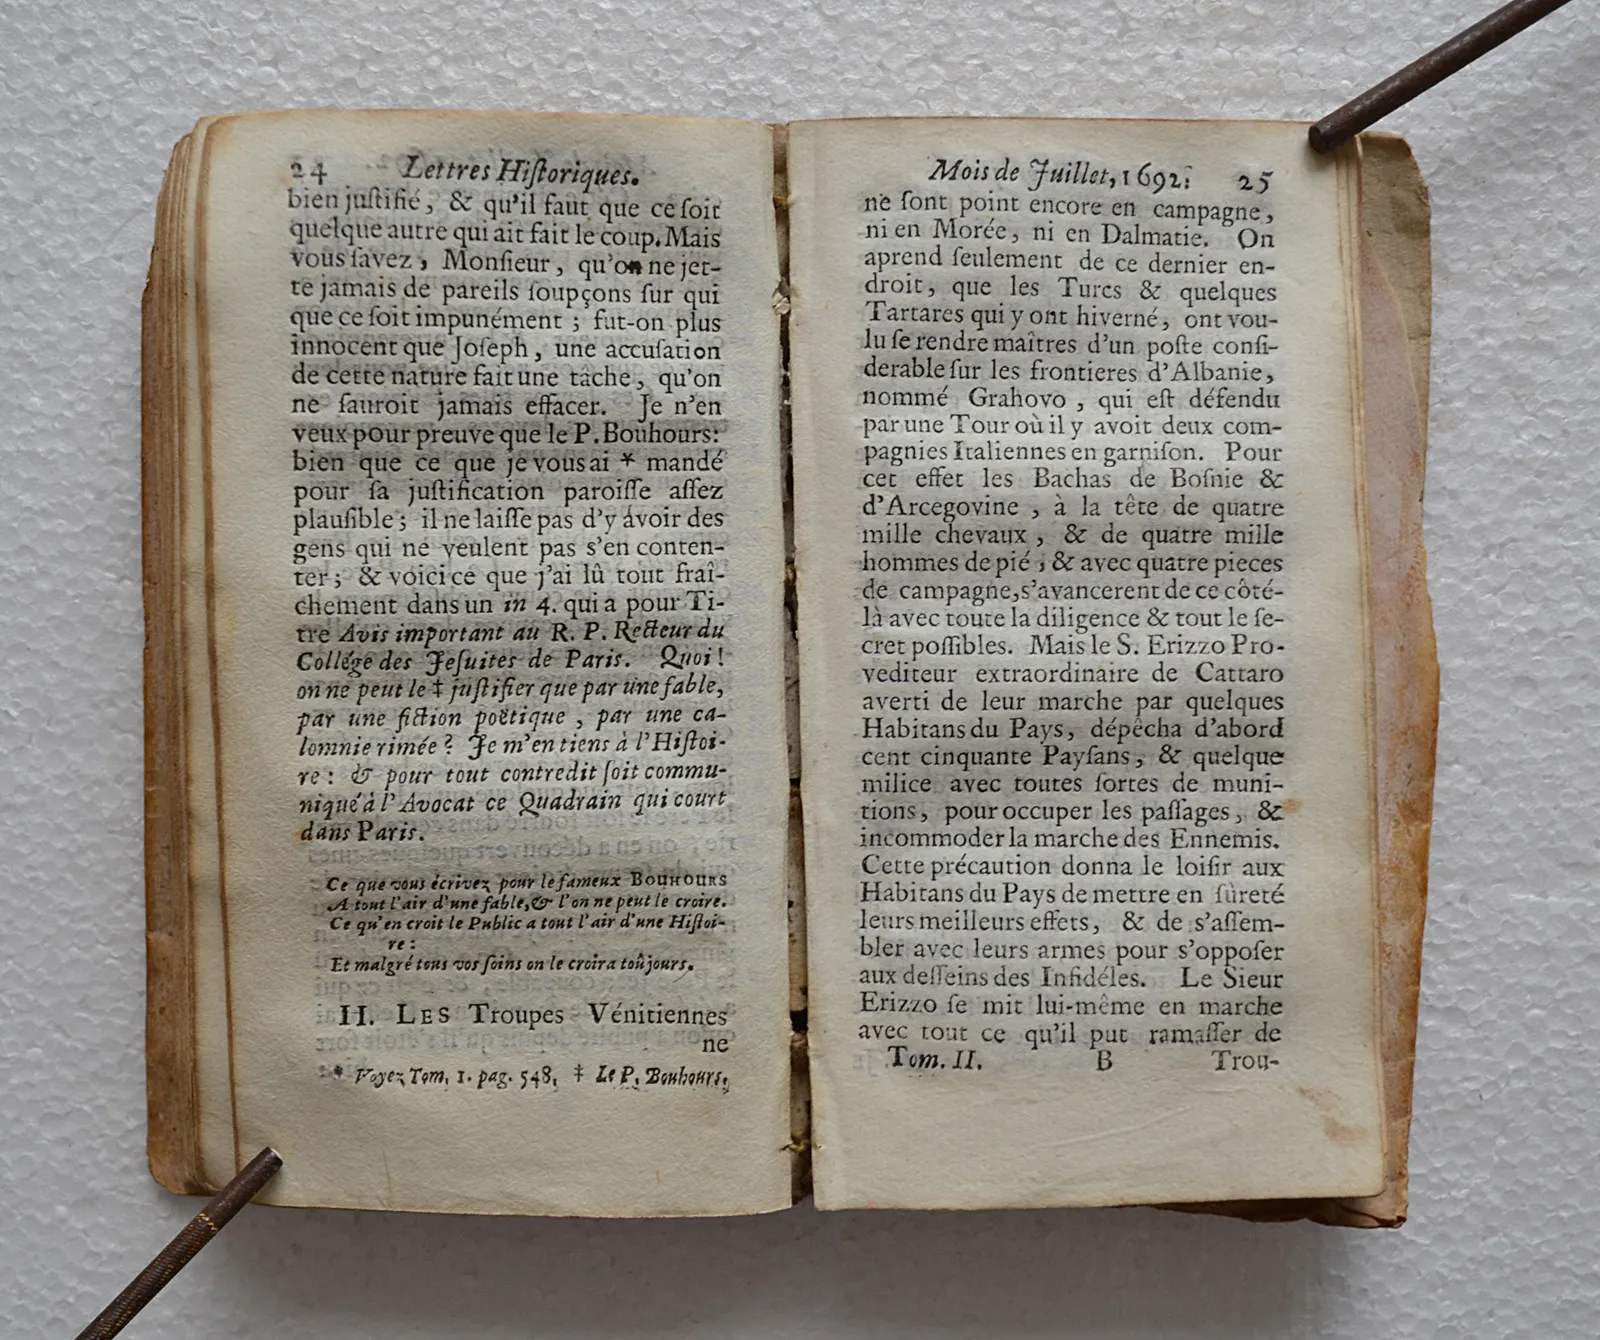 24 Lettres Hiſtoriques.
bien juſtifié, & qu'il faut que ce ſoit
quelque autre qui ait fait le coup. Mais
vous ſavez, Monſieur, qu'on ne jet-
te jamais de pareils ſoupçons ſur qui
que ce ſoit impunément ; fut-on plus
innocent que Joſeph, une accuſation
de cette nature fait une tâche, qu'on
ne ſauroit jamais effacer. Je n'en
veux pour preuve que le P. Bouhours:
bien que ce que je vous ai * mandé
pour ſa juſtification paroiſſe aſſez
plauſible ; il ne laiſſe pas d'y avoir des
gens qui ne veulent pas s'en conten-
ter ; & voici ce que j'ai lû tout fraî-
chement dans un in 4. qui a pour Ti-
tre Avis important au R. P. Recteur du
Collége des Jeſuites de Paris. Quoi !
on ne peut le ‡ juſtifier que par une fable,
par une fiction poëtique , par une ca-
lomnie rimée ? Je m'en tiens à l'Hiſtoi-
re : & pour tout contredit ſoit commu-
niqué à l'Avocat ce Quadrain qui court
dans Paris.
Ce que vous écrivez pour le fameux BOUHOURS
A tout l'air d'une fable, & l'on ne peut le croire.
Ce qu'en croit le Public a tout l'air d'une Hiſtoi-
re :
Et malgré tous vos ſoins on le croira toûjours.
II. LES Troupes Vénitiennes
ne
* Voyez Tom. 1. pag. 548. ‡ Le P. Bouhours.
Mois de Juillet, 1692. 25
ne ſont point encore en campagne,
ni en Morée, ni en Dalmatie. On
aprend ſeulement de ce dernier en-
droit, que les Turcs & quelques
Tartares qui y ont hiverné, ont vou-
lu ſe rendre maîtres d'un poſte conſi-
derable ſur les frontieres d'Albanie,
nommé Grahovo , qui eſt défendu
par une Tour où il y avoit deux com-
pagnies Italiennes en garniſon. Pour
cet effet les Bachas de Boſnie &
d'Arcegovine , à la tête de quatre
mille chevaux , & de quatre mille
hommes de pié , & avec quatre pieces
de campagne, s'avancerent de ce côté-
là avec toute la diligence & tout le ſe-
cret poſſibles. Mais le S. Erizzo Pro-
vediteur extraordinaire de Cattaro
averti de leur marche par quelques
Habitans du Pays, dépêcha d'abord
cent cinquante Payſans, & quelque
milice avec toutes ſortes de muni-
tions, pour occuper les paſſages, &
incommoder la marche des Ennemis.
Cette précaution donna le loiſir aux
Habitans du Pays de mettre en ſûreté
leurs meilleurs effets, & de s'aſſem-
bler avec leurs armes pour s'oppoſer
aux deſſeins des Infidéles. Le Sieur
Erizzo ſe mit lui-même en marche
avec tout ce qu'il put ramaſſer de
Tom. II. B Trou-